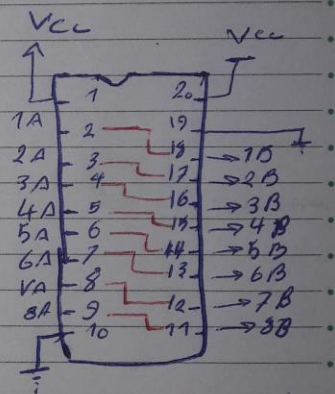 Vcc Vcc
1 20
1A 2 19
2A 3 18 → 1B
3A 4 17 → 2B
4A 5 16 → 3B
5A 6 15 → 4B
6A 7 14 → 5B
VA 8 13 → 6B
8A 9 12 → 7B
10 11 → 8B